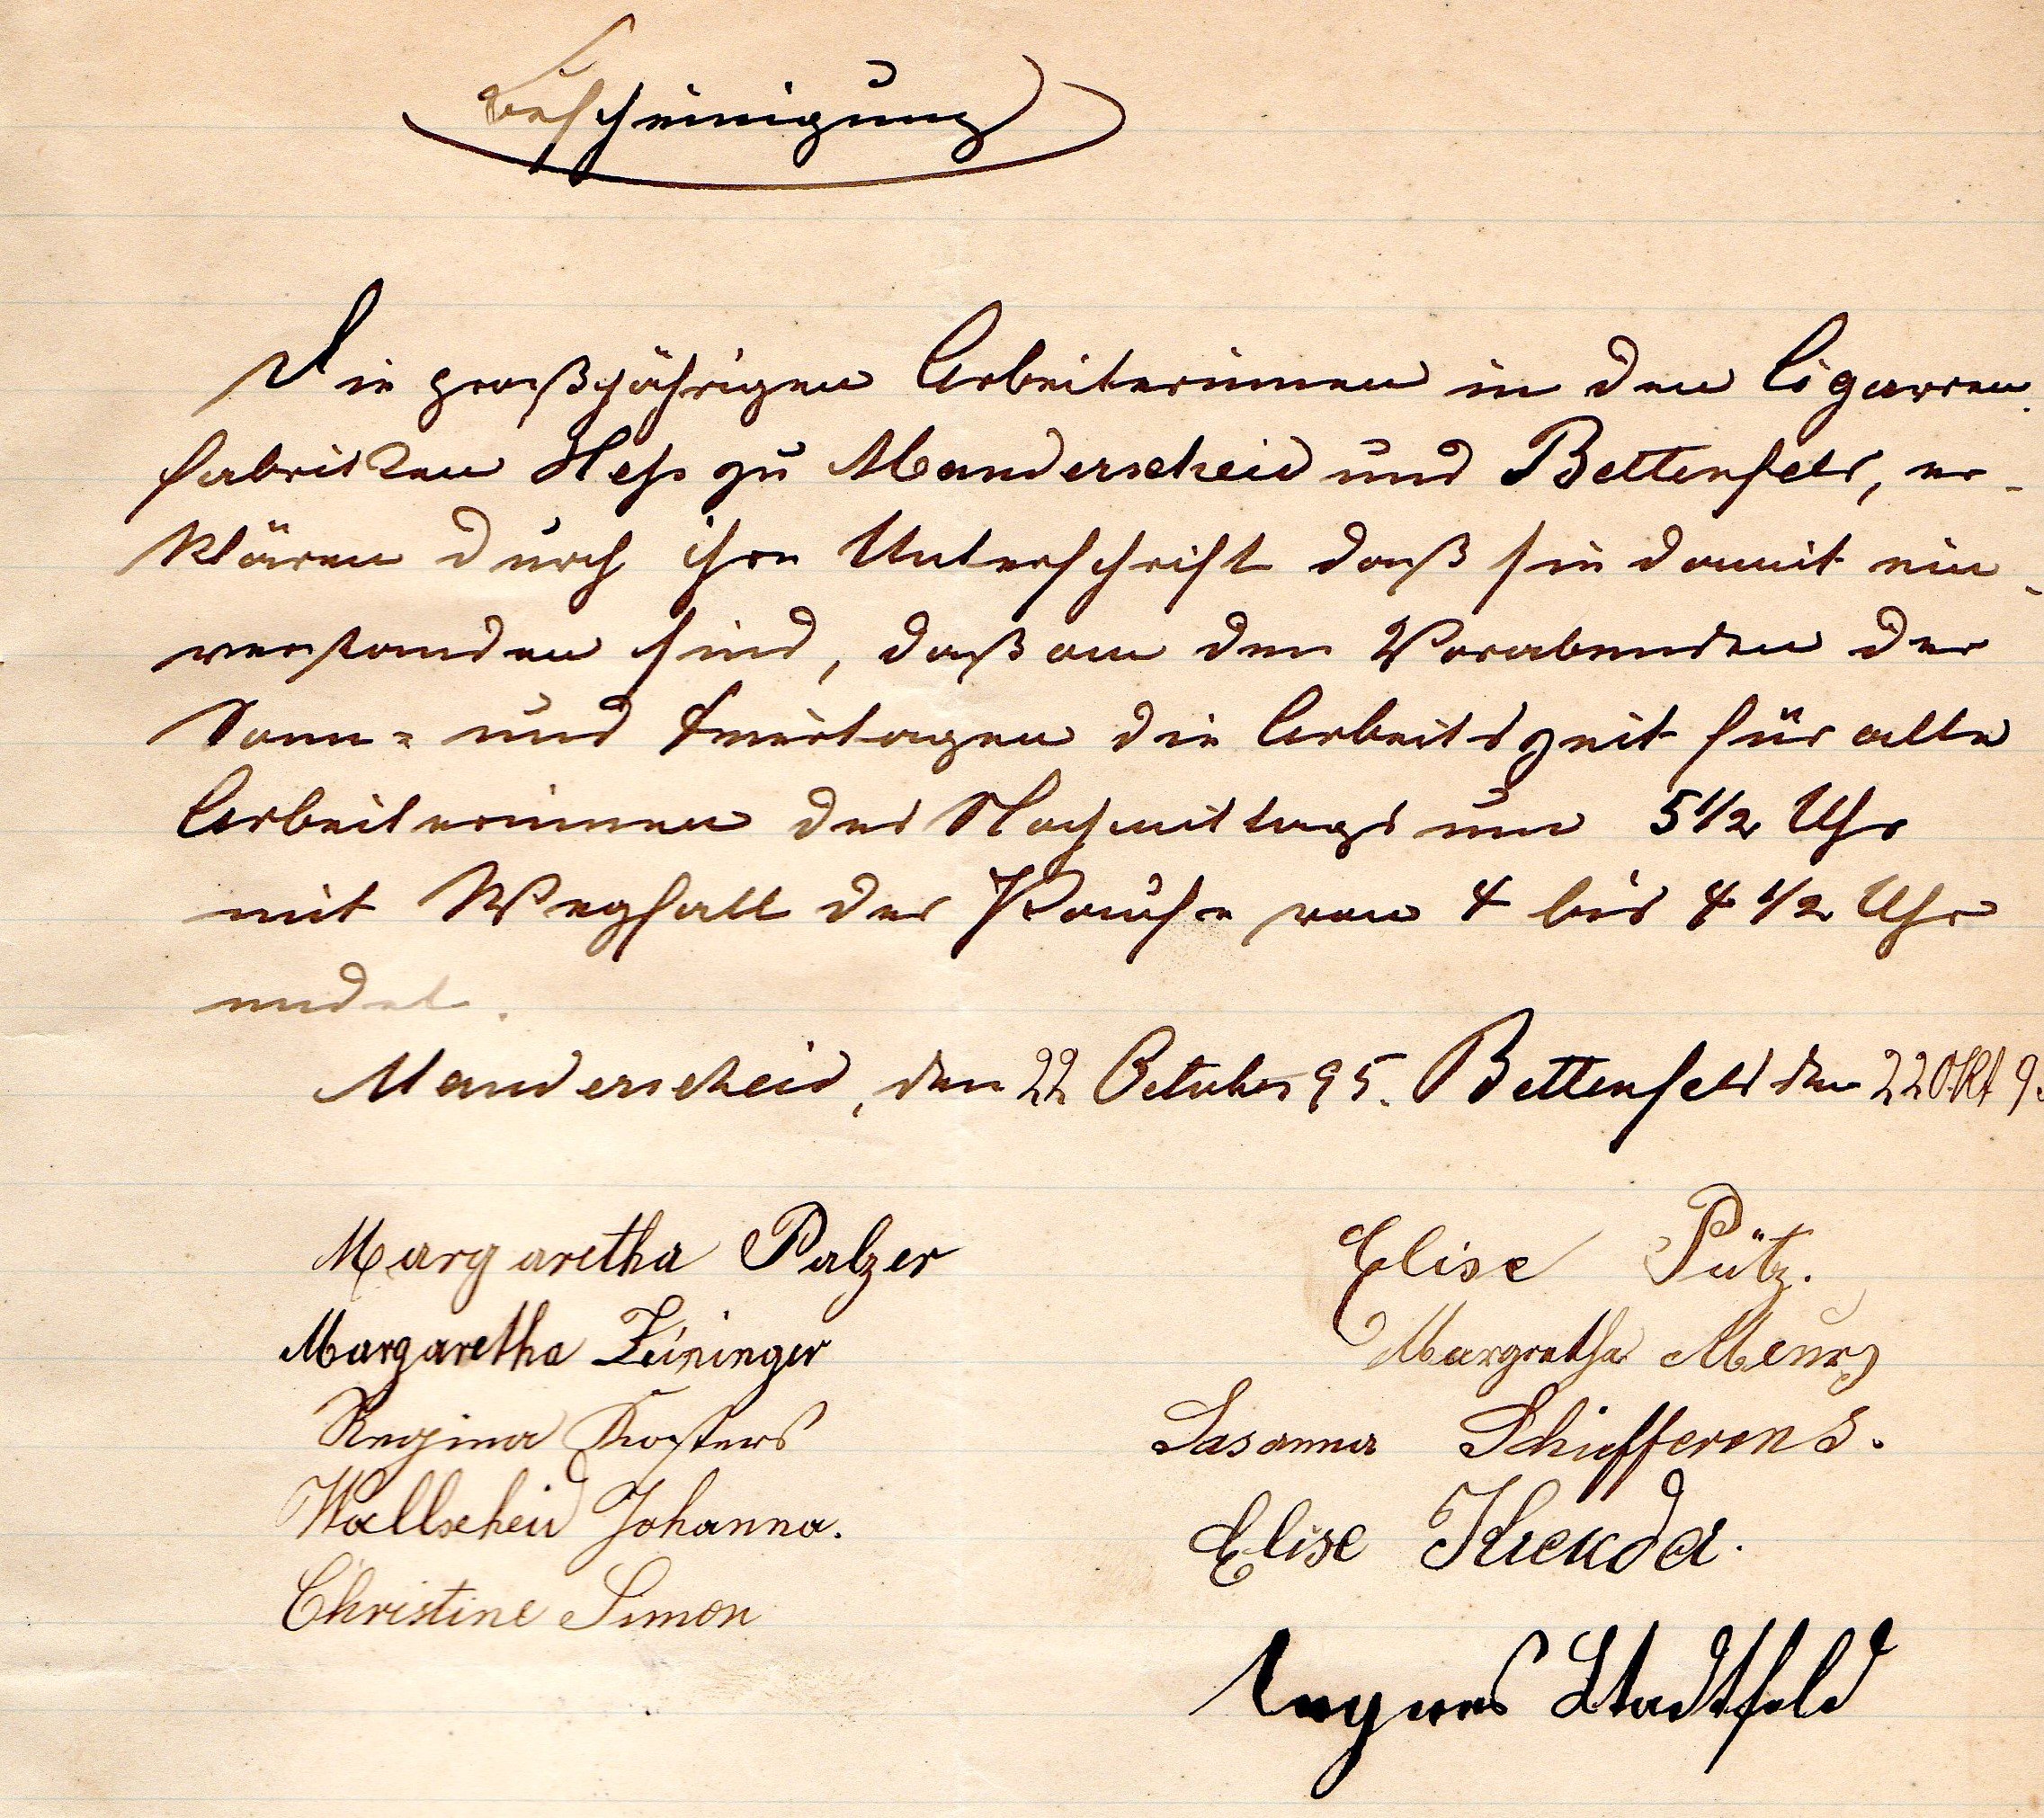 Bescheinigung
Die großjährigen Arbeiterinnen in den Cigarren-
fabriken Hess zu Manderscheid und Bettenfeld, er-
klären durch ihre Unterschrift daß sie damit ein-
verstanden sind, daß an den Vorabenden der
Sonn- und Feiertagen die Arbeitszeit für alle
Arbeiterinnen des Nachmittags um 5 1/2 Uhr
mit Wegfall der Pause von 4 bis 4 1/2 Uhr
endet.
Manderscheid, den 22 October 95. Bettenfeld den 22 Okt 9
Margaretha Palzer
Margaretha Zeininger
Regina Kosters
Wallscheid Johanna.
Christine Simon
Elise Pütz.
Margretha Meurz
Susanna Schifferens.
Elise
Angnes Stadtfeld